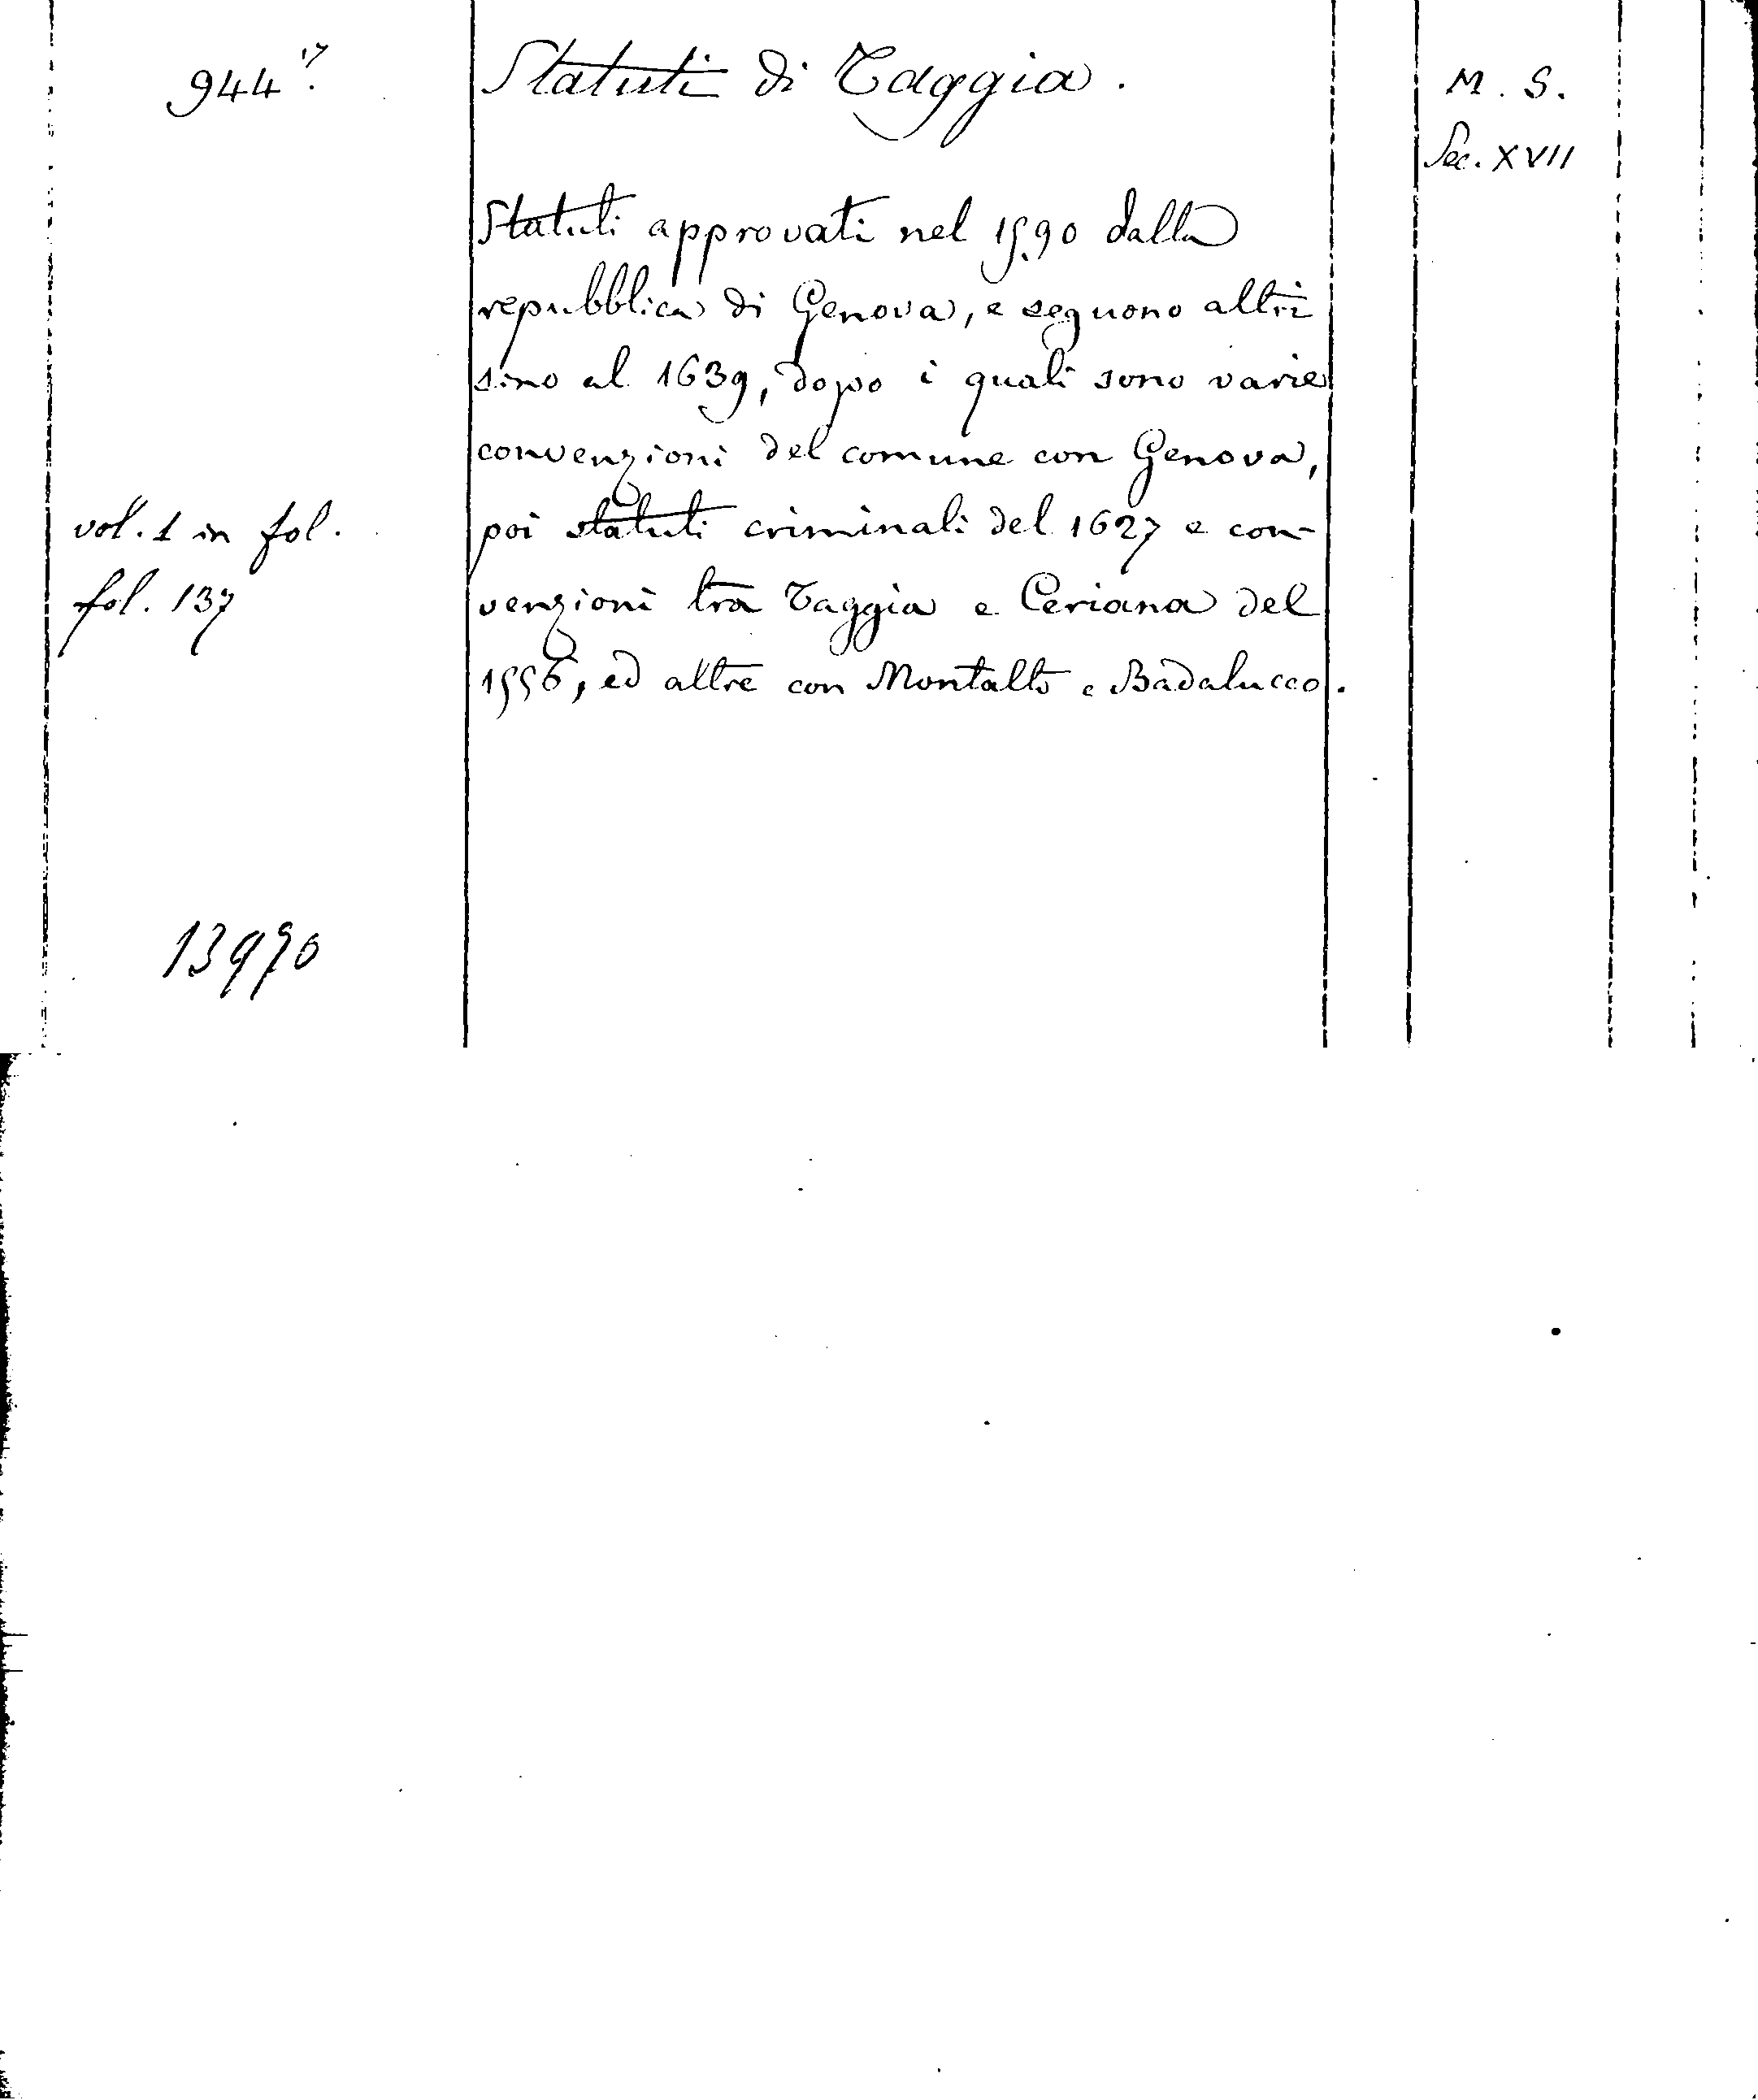 944 17.
Statuti di Taggia.
M. S.
Sec. XVII
Statuti approvati nel 1590 dalla
repubblica di Genova, e seguono altri
sino al 1639, dopo i quali sono varie
convenzioni del comune con Genova,
vol. 1 in fol.
poi statuti criminali del 1627 e con-
fol. 137
venzioni tra Taggia e Ceriana del
1556, ed altre con Montalto e Badalucco.
13970